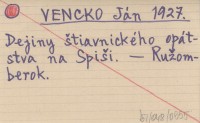 VENCKO Ján 1927.
Dejiny štiavnického opát-
stva na Spiši. — Ružom-
berok.